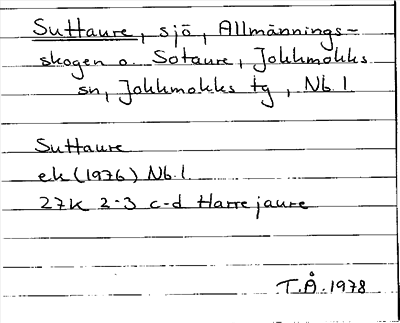 Suttaure, sjö, Allmännings-
skogen o. Sotaure, Jokkmokks
sn, Jokkmokks tg, Nb.l
Suttaure
ek (1976) Nb.l.
27K 2-3 c-d Harrejaure
T.Å. 1978